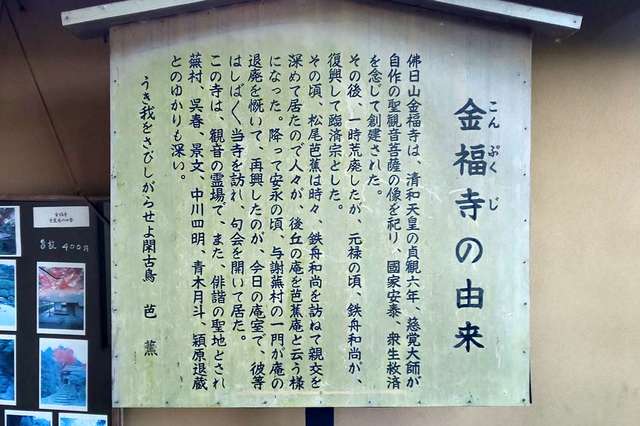 金福寺の由来
こんぷくじ
佛日山金福寺は、清和天皇の貞観六年、慈覚大師が
自作の聖観音菩薩の像を祀り、國家安泰、衆生救済
を念じて創建された。
その後、一時荒廃したが、元禄の頃、鉄舟和尚が、
復興して臨済宗とした。
その頃、松尾芭蕉は時々、鉄舟和尚を訪ねて親交を
深めて居たので人々が、後丘の庵を芭蕉庵と云う様
になった。降って安永の頃、与謝蕪村の一門が庵の
退廃を慨いて、再興したのが、今日の庵室で、彼等
はしばしば、当寺を訪れ、句会を開いて居た。
この寺は、観音の霊場で、また、俳諧の聖地とされ
蕪村、呉春、景文、中川四明、青木月斗、穎原退蔵
とのゆかりも深い。
うき我をさびしがらせよ閑古鳥　芭蕉
400円